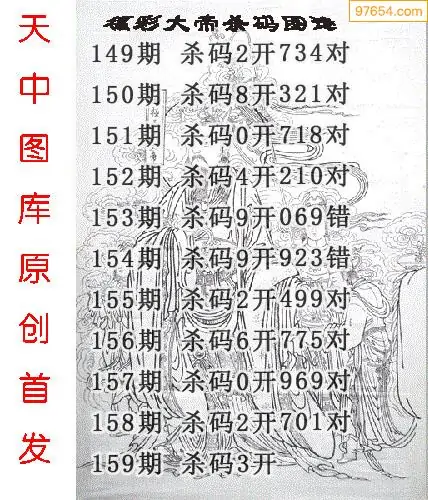 97654.com
福彩大帝杀码图谜
149期 杀码2开734对
150期 杀码8开321对
151期 杀码0开718对
152期 杀码4开210对
153期 杀码9开069错
154期 杀码9开923错
155期 杀码2开499对
156期 杀码6开775对
157期 杀码0开969对
158期 杀码2开701对
159期 杀码3开
天中图库原创首发